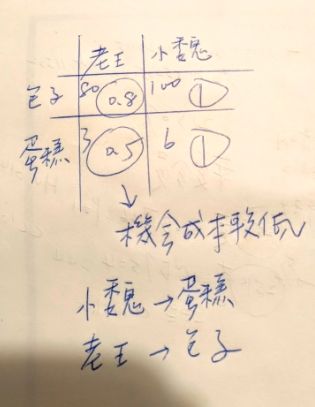 老王 小魏
包子 80 0.8 100 1
蛋糕 3 0.5 6 1
↓
機會成本較低
小魏→蛋糕
老王→包子